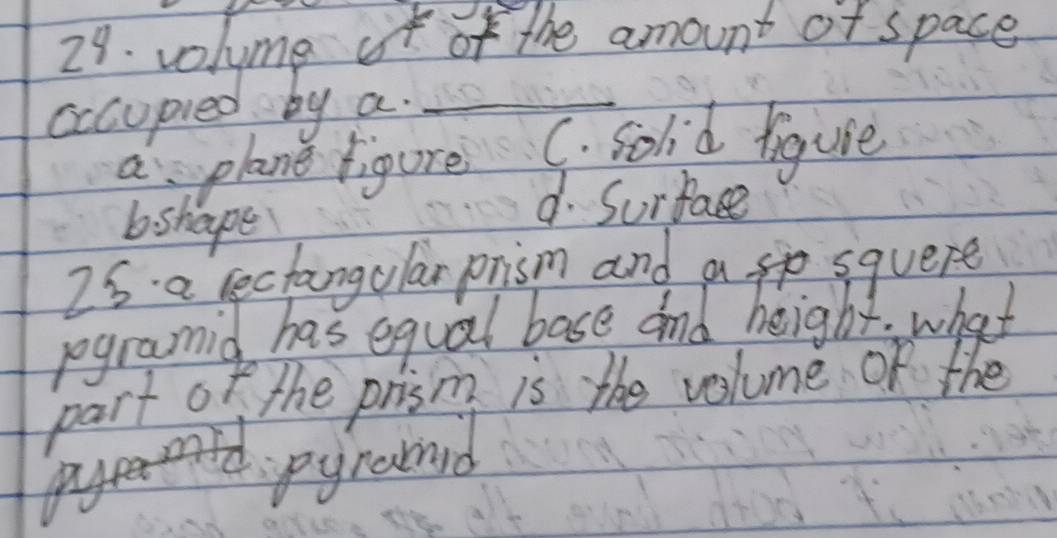 24. volume of the amount of space
occupied by a. ______
a. plane figure C. Solid figure
b. shape d. Surface
25. a rectangular prism and a squere
pyramid has equal base and height. what
part of the prism is the volume of the
pyramid